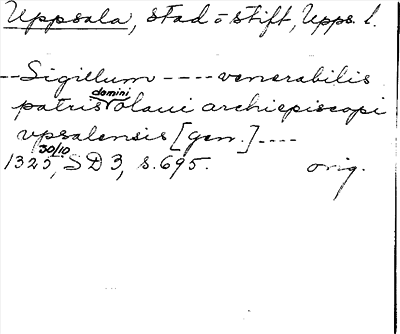 Uppsala, stad o stift, Upps. l.
--Sigillum ---- venerabilis
patris domini Olaui archiepiscopi
vpsalensis [gen.] ----
1325 30/10, SD 3, s. 695. orig.